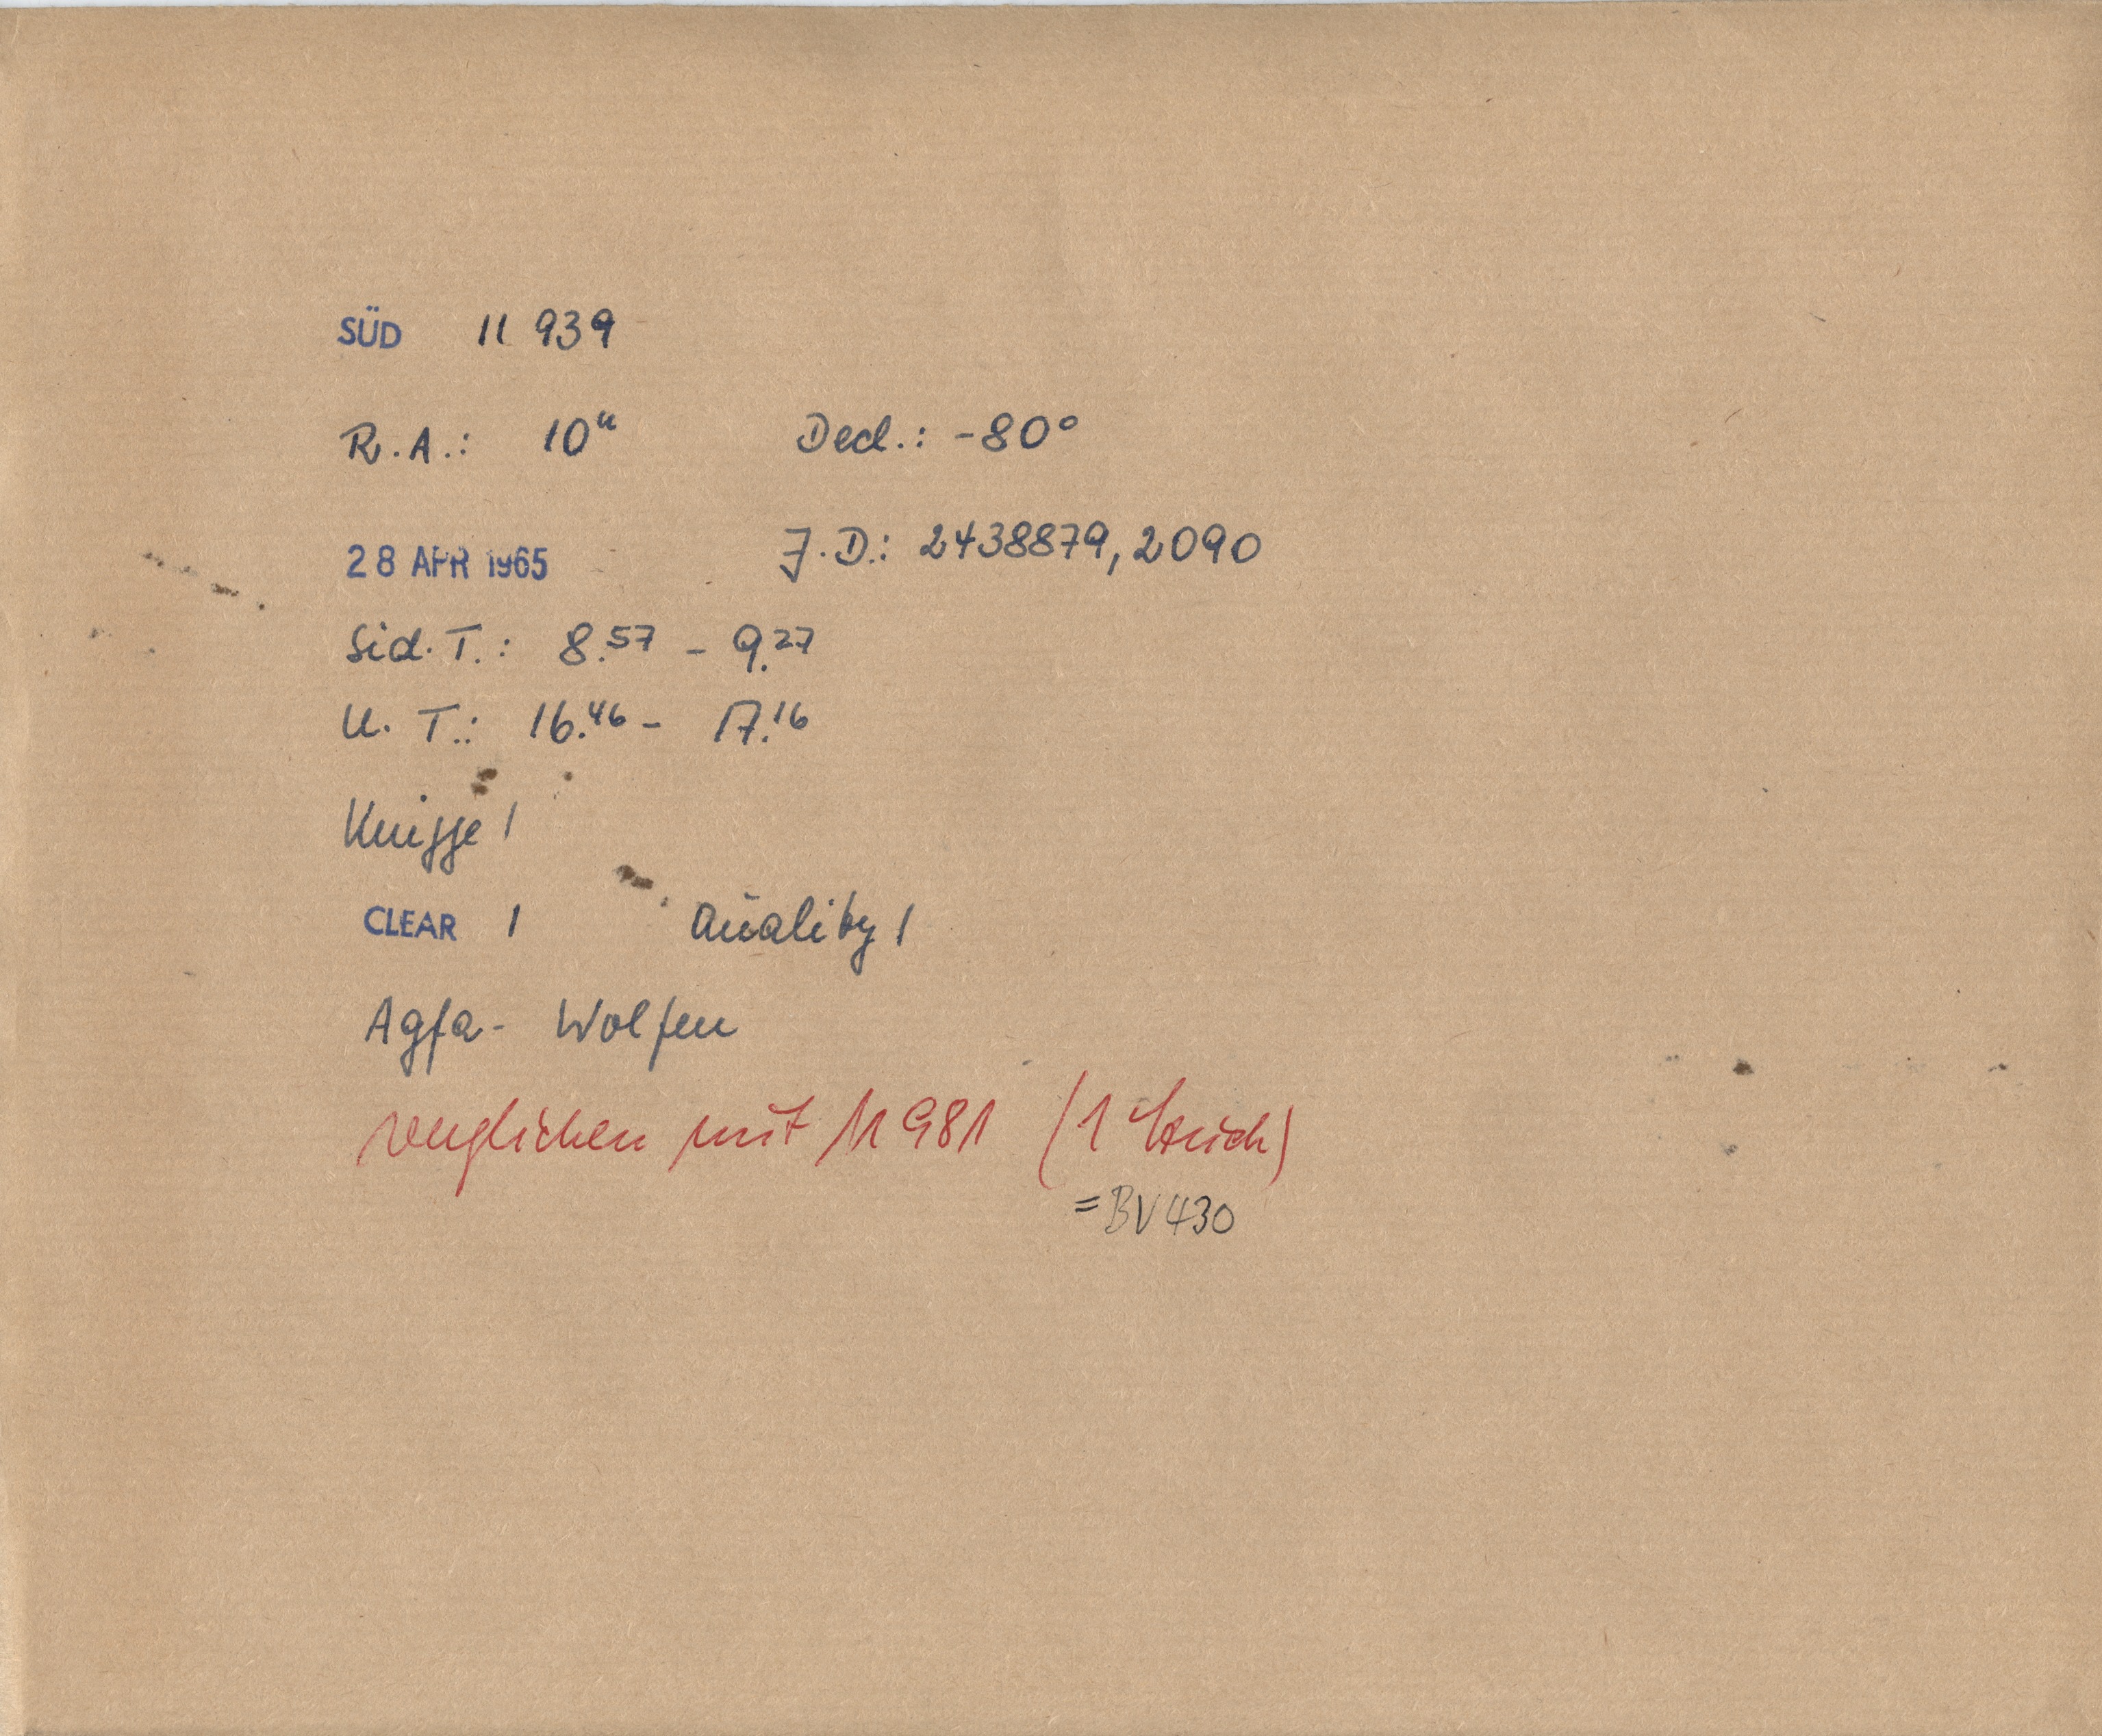 SÜD 11 939
R.A.: 10ʰ Decl.: -80°
28 APR 1965 J.D.: 2438879,2090
Sid. T.: 8.57 - 9.27
U. T.: 16.46 - 17.16
Knigge 1
CLEAR 1 Quality 1
Agfa- Wolfen
verglichen mit 11981 (1 Strich)
=BV430